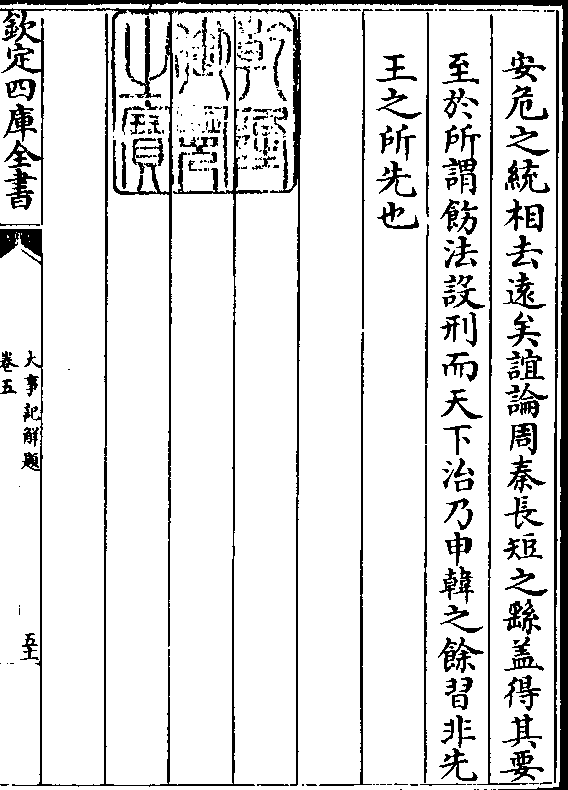 安危之統相去遠矣誼論周秦長短之繇盖得其要
至於所謂飭法設刑而天下治乃申韓之餘習非先
王之所先也
乾隆
御覽
之寶
欽定四庫全書
大事記解題
卷五